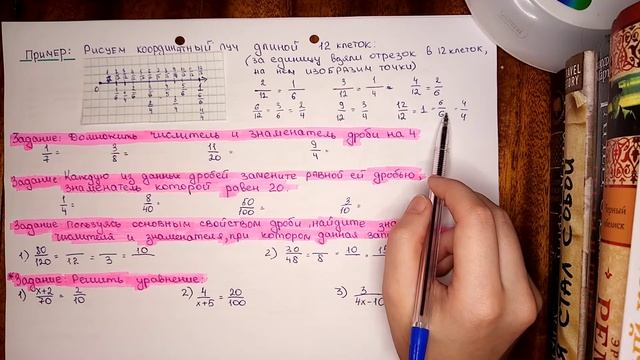 Пример: Рисуем координатный луч длиной 12 клеток.
(за единицу взяли отрезок в 12 клеток,
на нём изобразим точки)
2/12 = 1/6 3/12 = 1/4 4/12 = 2/6
6/12 = 3/6 = 2/4 9/12 = 3/4 12/12 = 1 = 6/6 = 4/4
Задание: Домножить числитель и знаменатель дроби на 4
1/7 = 3/8 = 11/20 = 9/4 =
Задание: Каждую из данных дробей замените равной ей дробью,
знаменатель которой равен 20.
1/4 = 8/40 = 50/100 = 3/10 =
Задание Пользуясь основным свойством дроби, найдите
числителя и знаменателя, при котором данная
1) 80/120 = /12 = /3 = 10/ 2) 30/48 = /8 = 10/ =
*Задание: Решить уравнение:
1) x+2/70 = 2/10 2) 4/x+5 = 20/100 3) 3/4x-10
TRAVEL STORY
СТАЛ СОБОЙ
Черный
РЕ